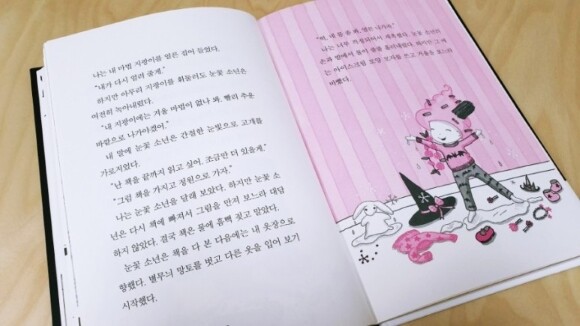 나는 내 마법 지팡이를 얼른 집어 들었다.
"내가 다시 얼려 줄게."
하지만 아무리 지팡이를 휘둘러도 눈꽃 소년은
여전히 녹아내렸다.
"내 지팡이에는 겨울 마법이 없나 봐. 빨리 추운
바깥으로 나가야겠어."
내 말에 눈꽃 소년은 간절한 눈빛으로 고개를
가로저었다.
"난 책을 끝까지 읽고 싶어. 조금만 더 있을게."
"그럼 책을 가지고 정원으로 가자."
나는 눈꽃 소년을 달래 보았다. 하지만 눈꽃 소
년은 다시 책에 빠져서 그림을 만져 보느라 대답
하지 않았다. 결국 책은 물에 흠뻑 젖고 말았다.
눈꽃 소년은 책을 다 본 다음에는 내 옷장으로
향했다. 별무늬 망토를 벗고 다른 옷을 입어 보기
시작했다.
내 좀 봐,
나는 너무 걱정되어서 재촉했다.
손과 발에서 물이
는 아이스크림 모양 모자를 쓰고 거울을
바빴다.